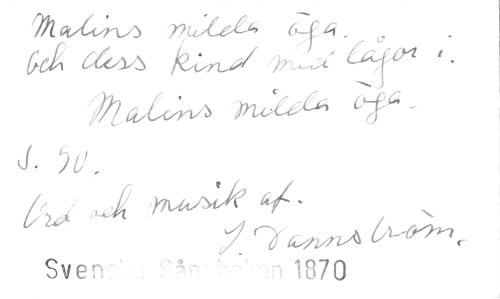 Malins milda öga.
Och dess kind med lågor i.
Malins milda öga.
S. 90.
Ord och musik af.
J Dannström.
Svenska Sångboken 1870